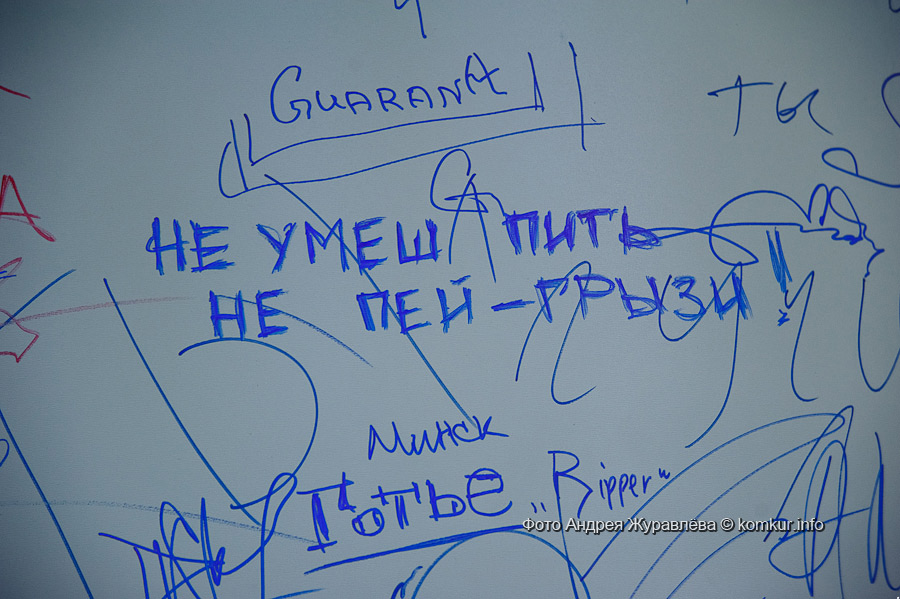 GUARANA
ТЫ
НЕ УМЕЕШ ПИТЬ
НЕ ПЕЙ - ГРЫЗИ!
Минск
Готье „Ripper“
Фото Андрея Журавлёва © komkur.info